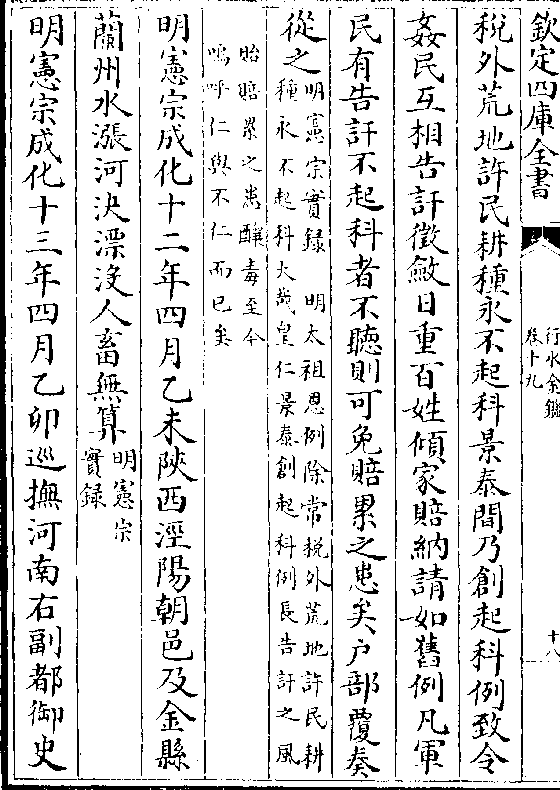 欽定四庫全書
行水金鑑
卷十九
十八
稅外荒地許民耕種永不起科景泰間乃創起科例致令
姦民互相告訐徵斂日重百姓傾家賠納請如舊例凡軍
民有告訐不起科者不聽則可免賠累之患矣户部覆奏
從之
明憲宗實録 明太祖恩例除常税外荒地許民耕
種永不起科大哉皇仁景泰創起科例長告訐之風
貽賠累之患釀毒至今
嗚呼仁與不仁而已矣
明憲宗成化十二年四月乙未陜西涇陽朝邑及金縣
蘭州水漲河決漂沒人畜無算
明憲宗
實録
明憲宗成化十三年四月乙卯巡撫河南右副都御史